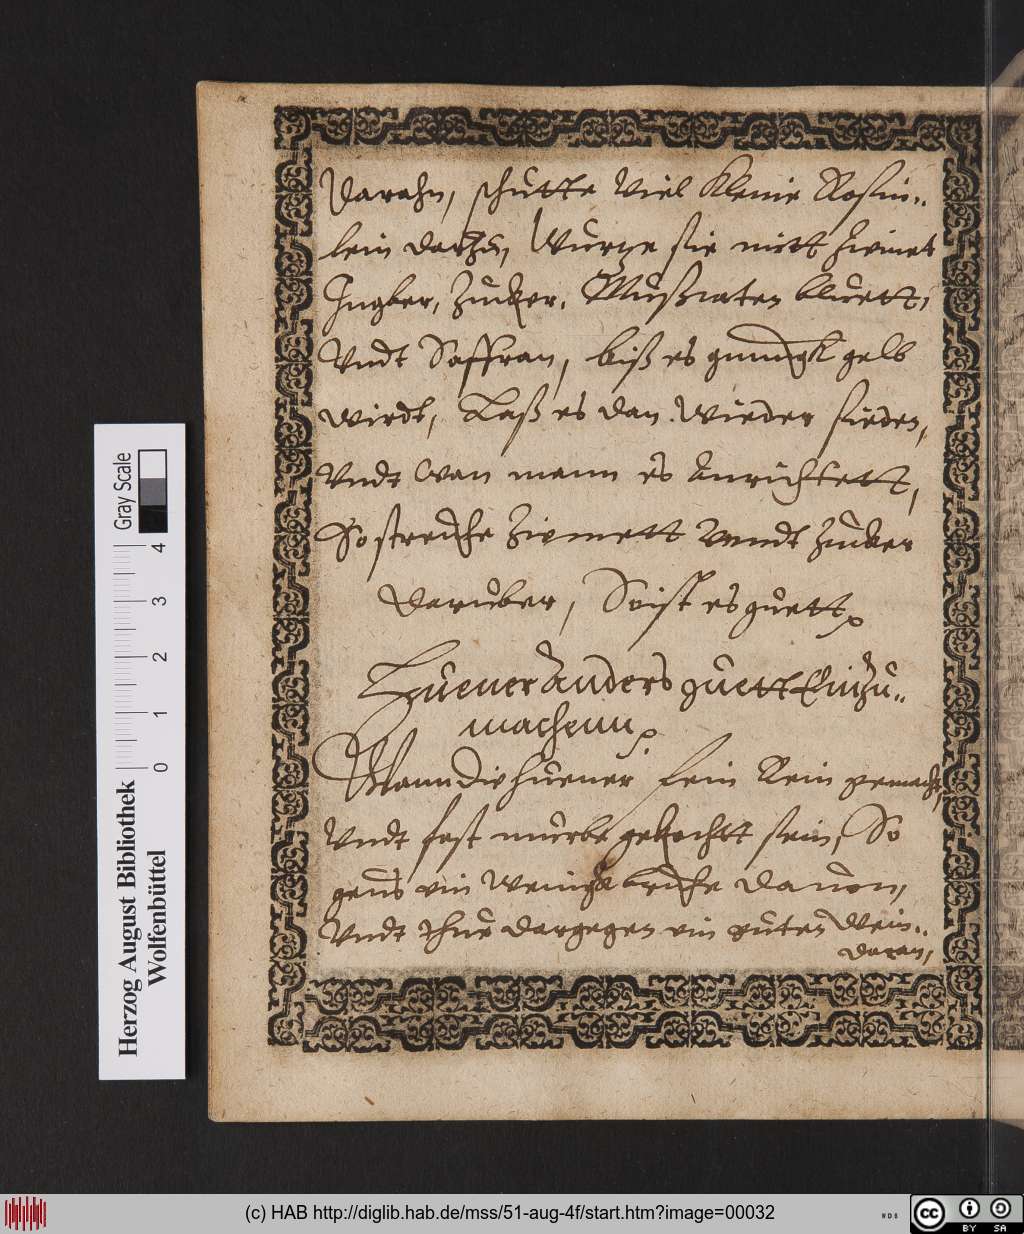 darahn, schutte Viel kleine Rosin„
lein darzu, Wurtze sie mitt Zimet
Ingber, Zucker, Mußcaten bluett,
Vndt Saffran, biß es gnungk gelb
wirdt, Laß es dan wieder sieden,
Vndt wan mann es Anrichtett,
So streuhe Zimett Vnndt Zucker
daruber, So ist es guett
Huener Anders guett Einzu„
machenn
Wann die huener fein Rein gemacht,
Vndt fast murbe gekochtt sein, So
geuß ein wenigk bruhe dauon,
Vndt thue dargegen ein guten Wein„
daran,
Herzog August Bibliothek
Wolfenbüttel
Gray Scale
0 1 2 3 4
(c) HAB http://diglib.hab.de/mss/51-aug-4f/start.htm?image=00032
WDB
cc BY SA